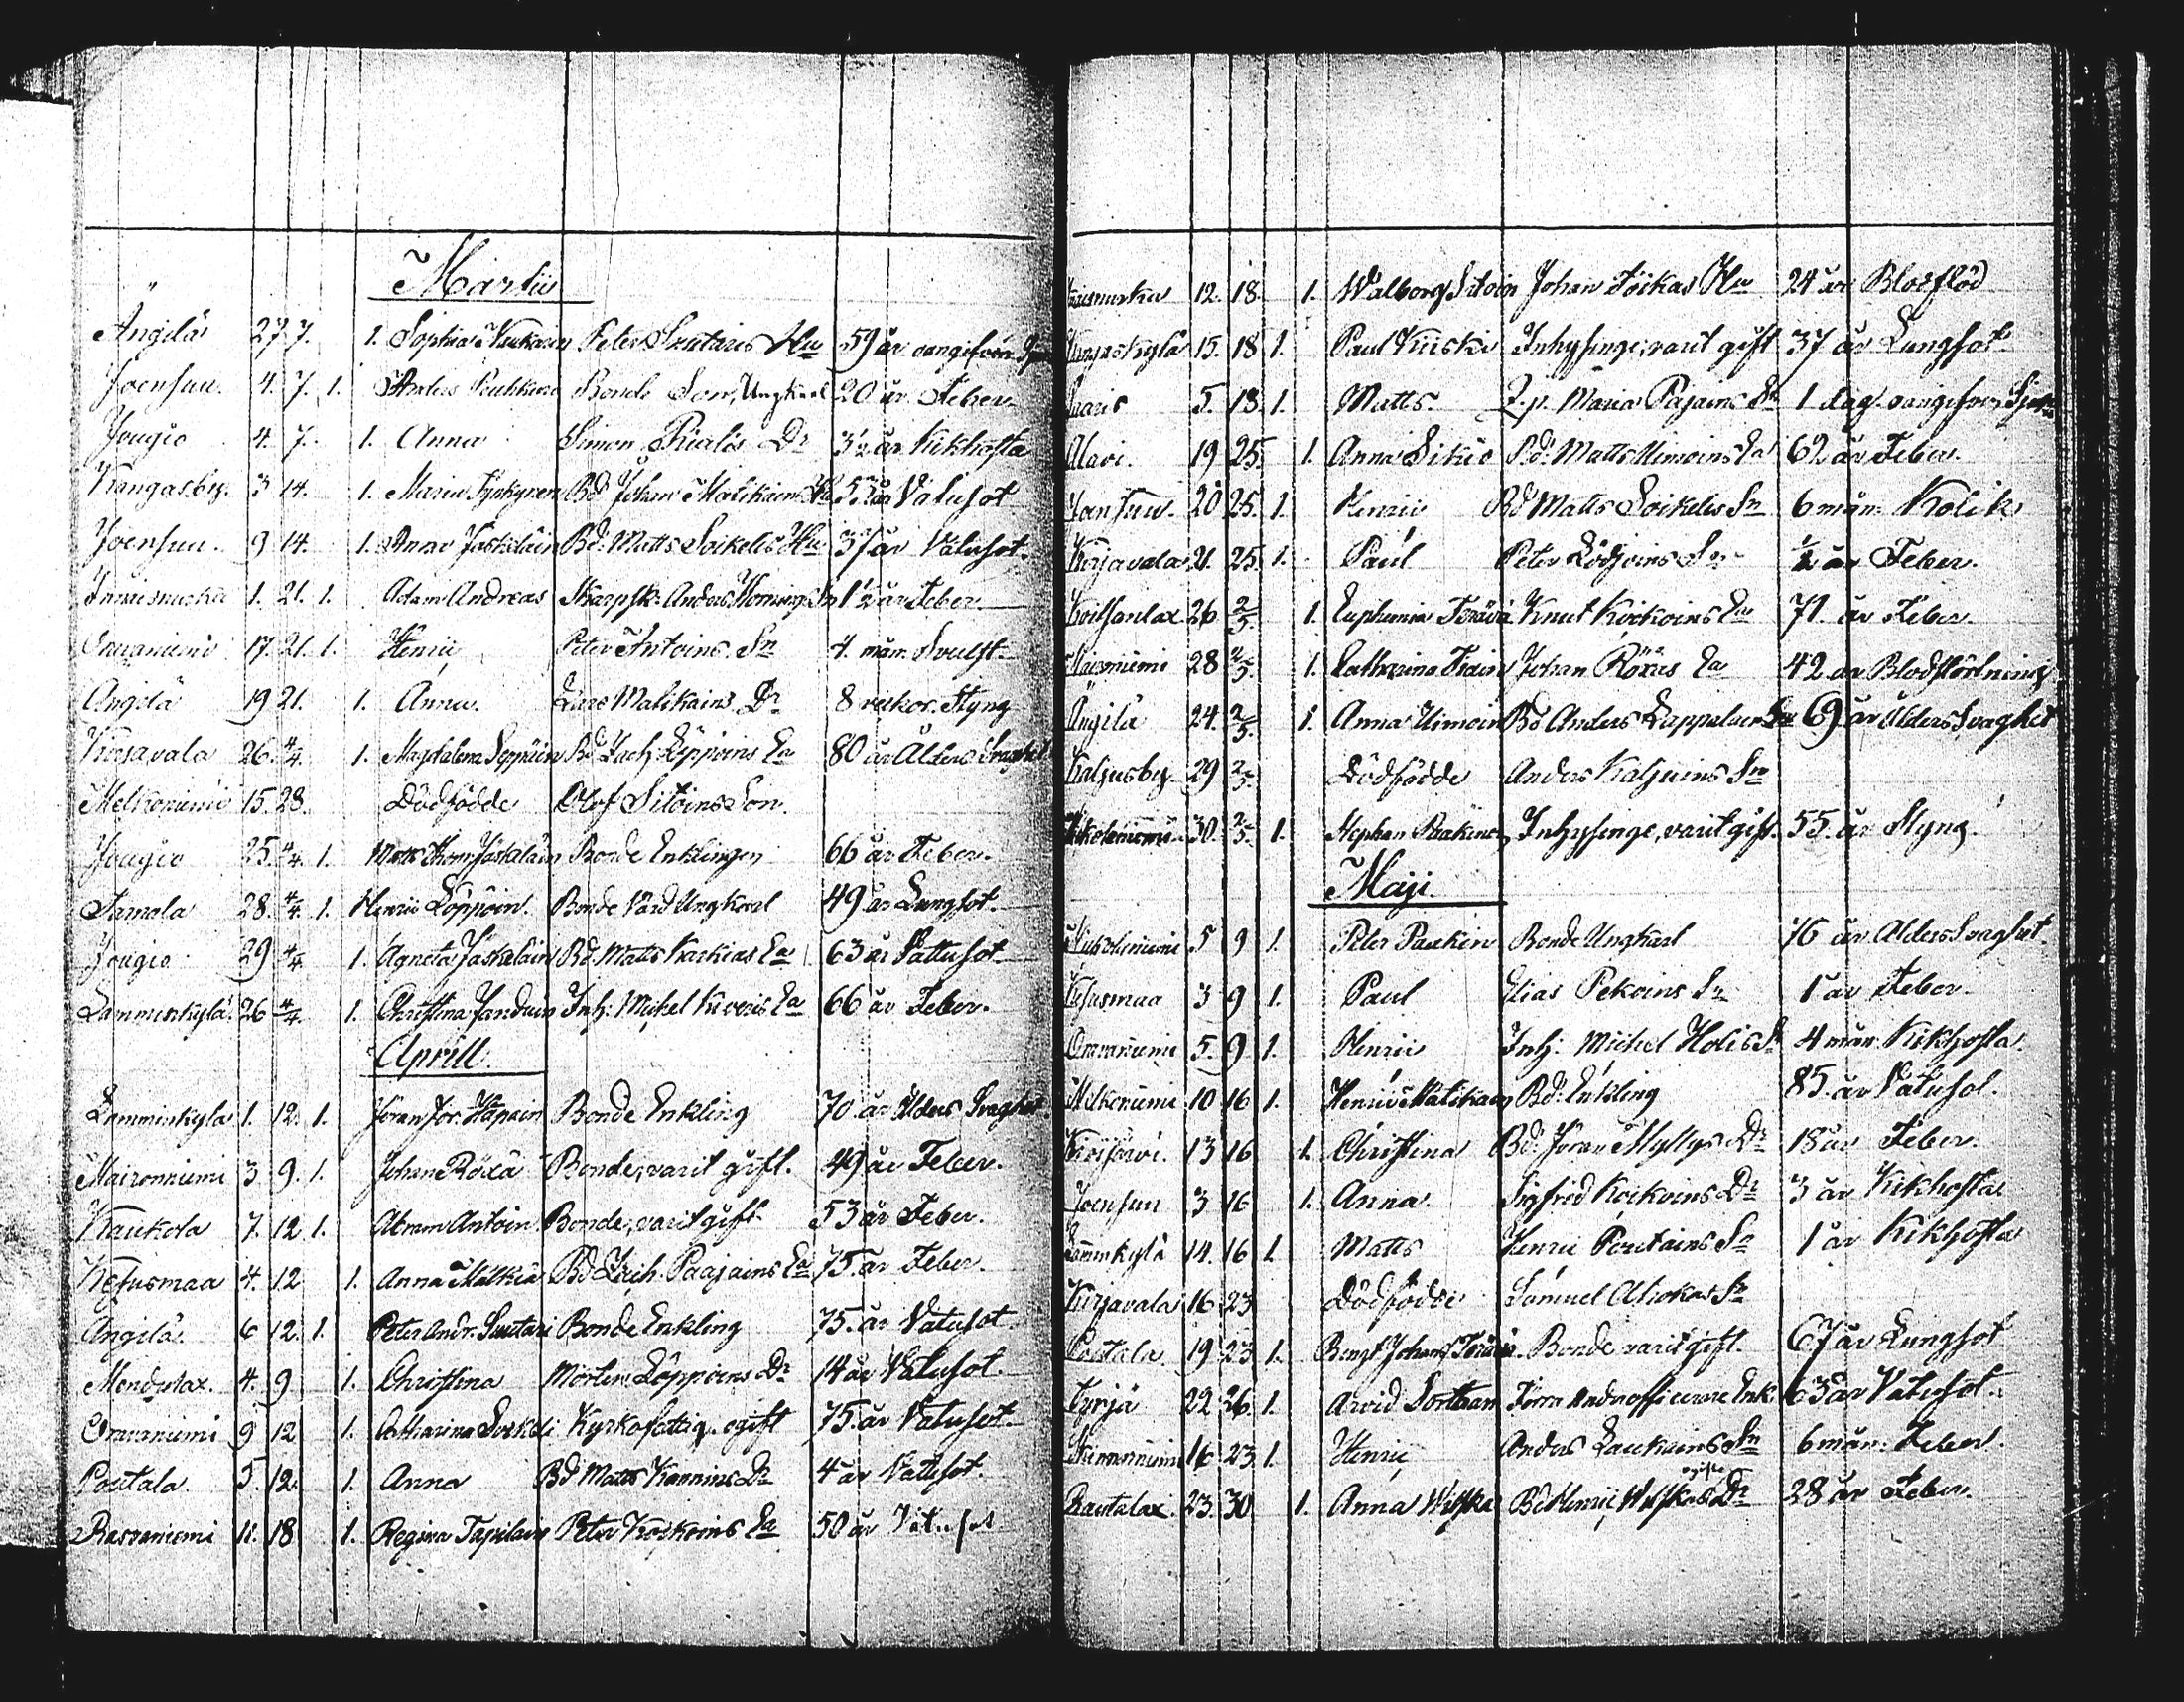 Martii
Ängilä 27. 7. 1. Sophia Kuikain Peter Suutaris Hu 59 år oangifven
Joensuu. 4. 7. 1. Anders Puukkine Bonde Son, Ungkarl 20 år Feber.
Jougio 4. 7. 1. Anna Simon Dr 3½ år Kikhosta
Kangasby. 3 14. 1. Maria Bd Johan Matikains 53 år Vatusot
Joensuu. 9 14. 1. Anna Jäskeläin Bd: Matts Soikelis Hu 37 år Vatusot.
1. 21. 1. Adam Andreas Skarpsk: Anders 1½ år Feber.
Oravaniemi 17. 21. 1. Henric Peter Antoins Sn 4. mån. Svulst
Ängilä 19 21. 1. Anna. Lars Matikains Dr 8 veckor. Styng
Kirjavala 26. 4/4. 1. Magdalena Leppöin Bd Zach. Löppöins Ea 80 år Ålders Svaghet
Melkoniemi 15. 28. Dödfödde Olof Sitoins Son.
Jougio 25. 4/4. 1. Matts Thom: Jäskeläin Bonde Enklingen 66 år Feber.
Jamala 28. 4/4. 1. Henric Löppöin. Bonde Värd Ungkarl 49 år Lungsot.
Jougio 29 4/4. 1. Agneta Jäskeläin Bd. Matts Karkias Ea 63 år Vattusot
Lamminkylä. 26 4/4. 1. Christina Inh: Michel Kuveris Ea 66 år Feber.
Aprill.
Lamminkylä 1. 12. 1. Jöran Jör. Häpain Bonde Enkling 70. år Ålders Svaghet
Maironniemi 3 9. 1. Johan Röxä Bonde, varit gift. 49 år Feber.
Kaukola 7. 12 1. Abram Antoin Bonde, varit gift. 53 år Feber.
Kesusmaa 4. 12 1. Anna Mälkiä Bd Zach. Paajains Ea 75. år Feber.
Ängilä. 6 12. 1. Peter Andr. Suutari Bonde Enkling 75. år Vatusot.
4. 9 1. Christina Mårten Löppöins Dr 14 år Vatusot.
Oravaniemi 9 12 1. Catharina Soikeli Kyrkofattig ogift 75. år Vatusot.
Poutala. 5. 12. 1. Anna Bd Matts Kannins Dr 4 år Vatusot.
Rasvaniemi 11. 18 1. Regina Tapilain Peter Koskoins Ea 50 år Vatusot
12. 18. 1. Walborg Sitoin Johan Töikas Hu 24 år Blodflöd
Kangaskylä 15. 18 1. Paul Kiiski Inhysinge, varit gift 37 år Lungsot.
Saaris 5. 18. 1. Matts. Q.p. Maria Pajains Sn 1 dag. oangifven
Alavi. 19 25. 1. Anna Sikiö Bd: Matts Uimoins Ea 62 år Feber.
Joensuu. 20 25. 1. Henric Bd Matts Soikelis Sn 6 mån. Kolik
Kirjavala 21. 25. 1. Paul Peter Lödjöins Sn ½ år Feber.
Koitsanlax 26 2/5. 1. Euphemia Knut Koikoins Ea 71. år Feber.
Maironniemi 28 2/5. 1. Catharina Johan Röxäs Ea 42 år Blodstörtning
Ängilä 24. 2/5. 1. Anna Uimoin Bd Anders Lappalains Ea 69 år Ålders Svaghet
Kaljusby. 29 2/5. Dödfödde Anders Kaljuins Sn
30. 2/5. 1. Stephan Paakinen Inhysinge, varit gift. 55. år Styng.
Maji.
5 9 1. Peter Paakin Bonde Ungkarl 76 år Ålders Svaghet.
Kesusmaa 3 9 1. Paul Elias Pekoins Sn 1 år Feber.
Oravaniemi 5. 9 1. Henric Inh: Michel Holis Sn 4 mån. Kikhosta.
Melkoniemi 10 16 1. Henric Matikain Bd: Enkling 85. år Vatusot.
13 16 1. Christina Bd: Jöran Myllys Dr 18 år Feber.
Joensuu 3 16 1. Anna. Sigfred Koikoins Dr 3 år Kikhosta
Lamminkylä 14. 16 1. Matts Henric Poutains Sn 1 år Kikhosta
Kirjavala 16. 23 Dödfödde Samuel Ahokas Sn
Poutala. 19 23 1. Bengt Johansf Bonde varit gift. 67 år Lungsot
Tyrjä 22 26. 1. Arvid Sorthan Förra Underofficerare Enk. 63 år Vatusot.
16 23 1. Henric Anders Laukains Sn 6 mån. Feber.
Rautalax. 23. 30 1. Anna Wiskä Bd Henric Wiskäs ogifte Dr 28 år Feber.